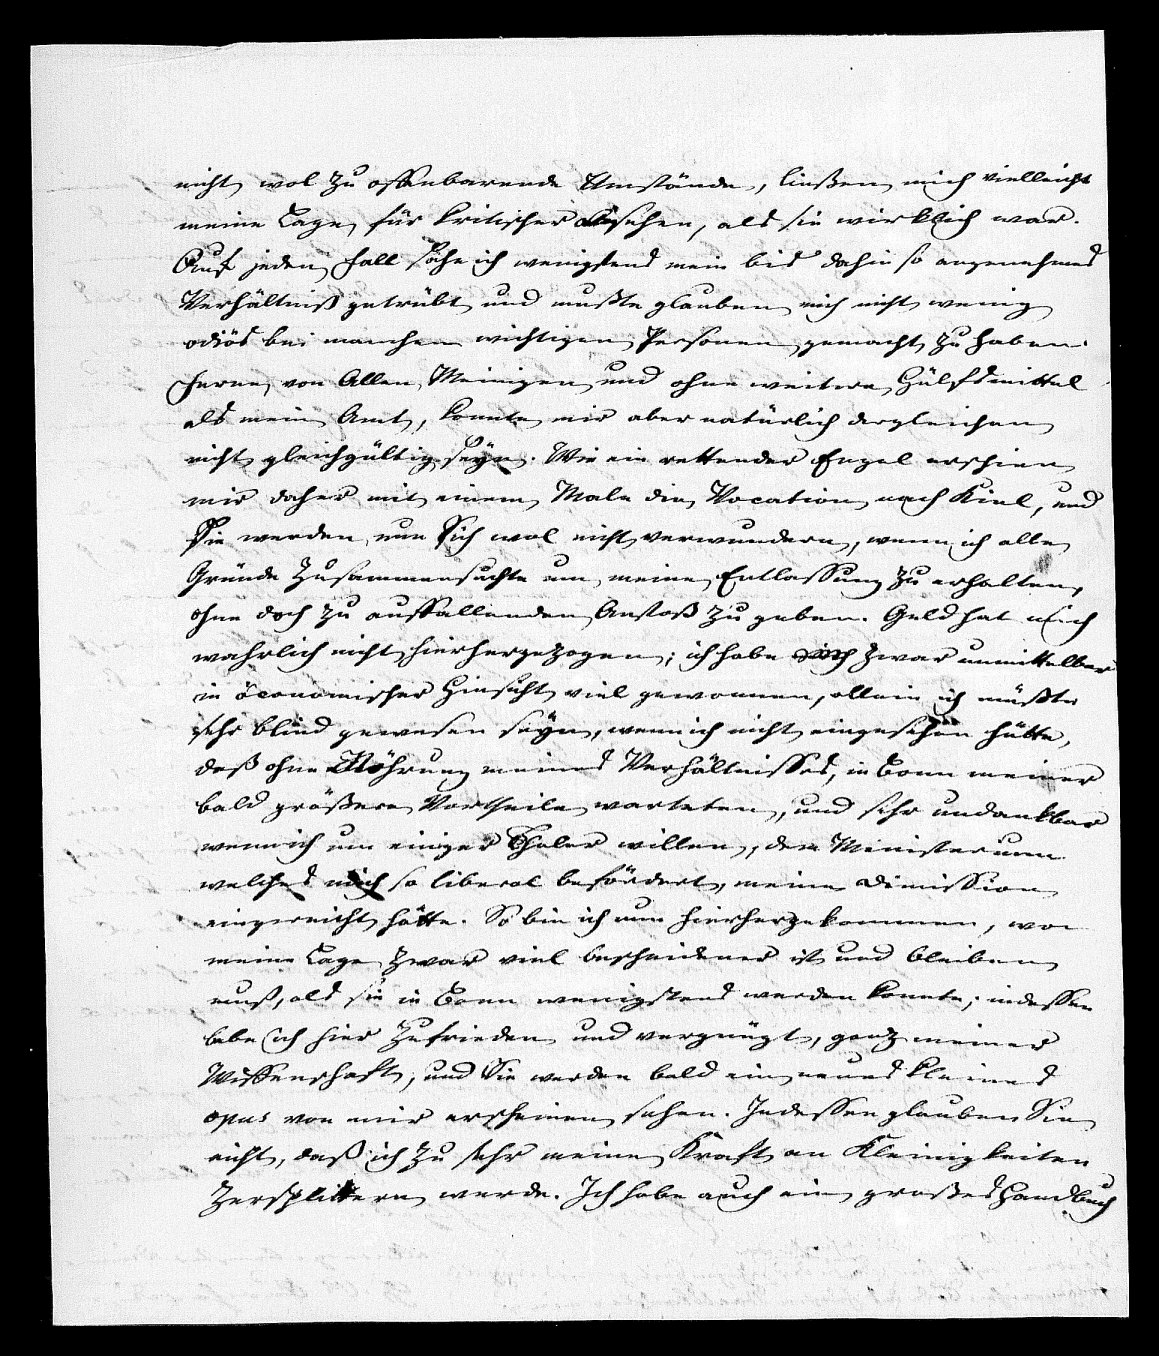 nicht wol zu offenbarende Umstände, ließen mich vielleicht
meine Lage für kritischer ansehen, als sie wirklich war.
Auf jeden Fall sahe ich wenigstens mein bis dahin so angenehmes
Verhältniß getrübt und mußte glauben mich nicht wenig
odiös bei manchen wichtigen Personen gemacht zu haben.
Ferne von Allen Meinigen und ohne weitere Hülfsmittel
als mein Amt, konnte mir aber natürlich dergleichen
nicht gleichgültig seyn. Wie ein rettender Engel erschien
mir daher mit einem Male die Vocation nach Kiel, und
Sie werden nun Sich wol nicht verwundern, wenn ich alle
Gründe zusammensuchte um meine Entlassung zu erhalten,
ohne doch zu auffallenden Anstoß zu geben. Geld hat mich
wahrlich nicht hierhergezogen; ich habe zwar unmittelbar
in öconomischer Hinsicht viel gewonnen, allein ich müßte
sehr blind gewesen seyn, wenn ich nicht eingesehen hätte,
daß ohne Störung meines Verhältnisses, in Bonn meiner
bald größere Vortheile warteten, und sehr undankbar
wenn ich um einiger Thaler willen, dem Ministerium
welches mich so liberal befördert, meine Dimission
eingereicht hätte. So bin ich nun hierhergekommen, wo
meine Lage zwar viel bescheidener ist und bleiben
muß, als sie in Bonn wenigstens werden konnte; indessen
lebe ich hier zufrieden und vergnügt, ganz meiner
Wissenschaft, und Sie werden bald ein neues kleines
opus von mir erscheinen sehen. Indessen glauben Sie
nicht, daß ich zu sehr meine Kraft an Kleinigkeiten
zersplittern werde. Ich habe auch ein großes Handbuch